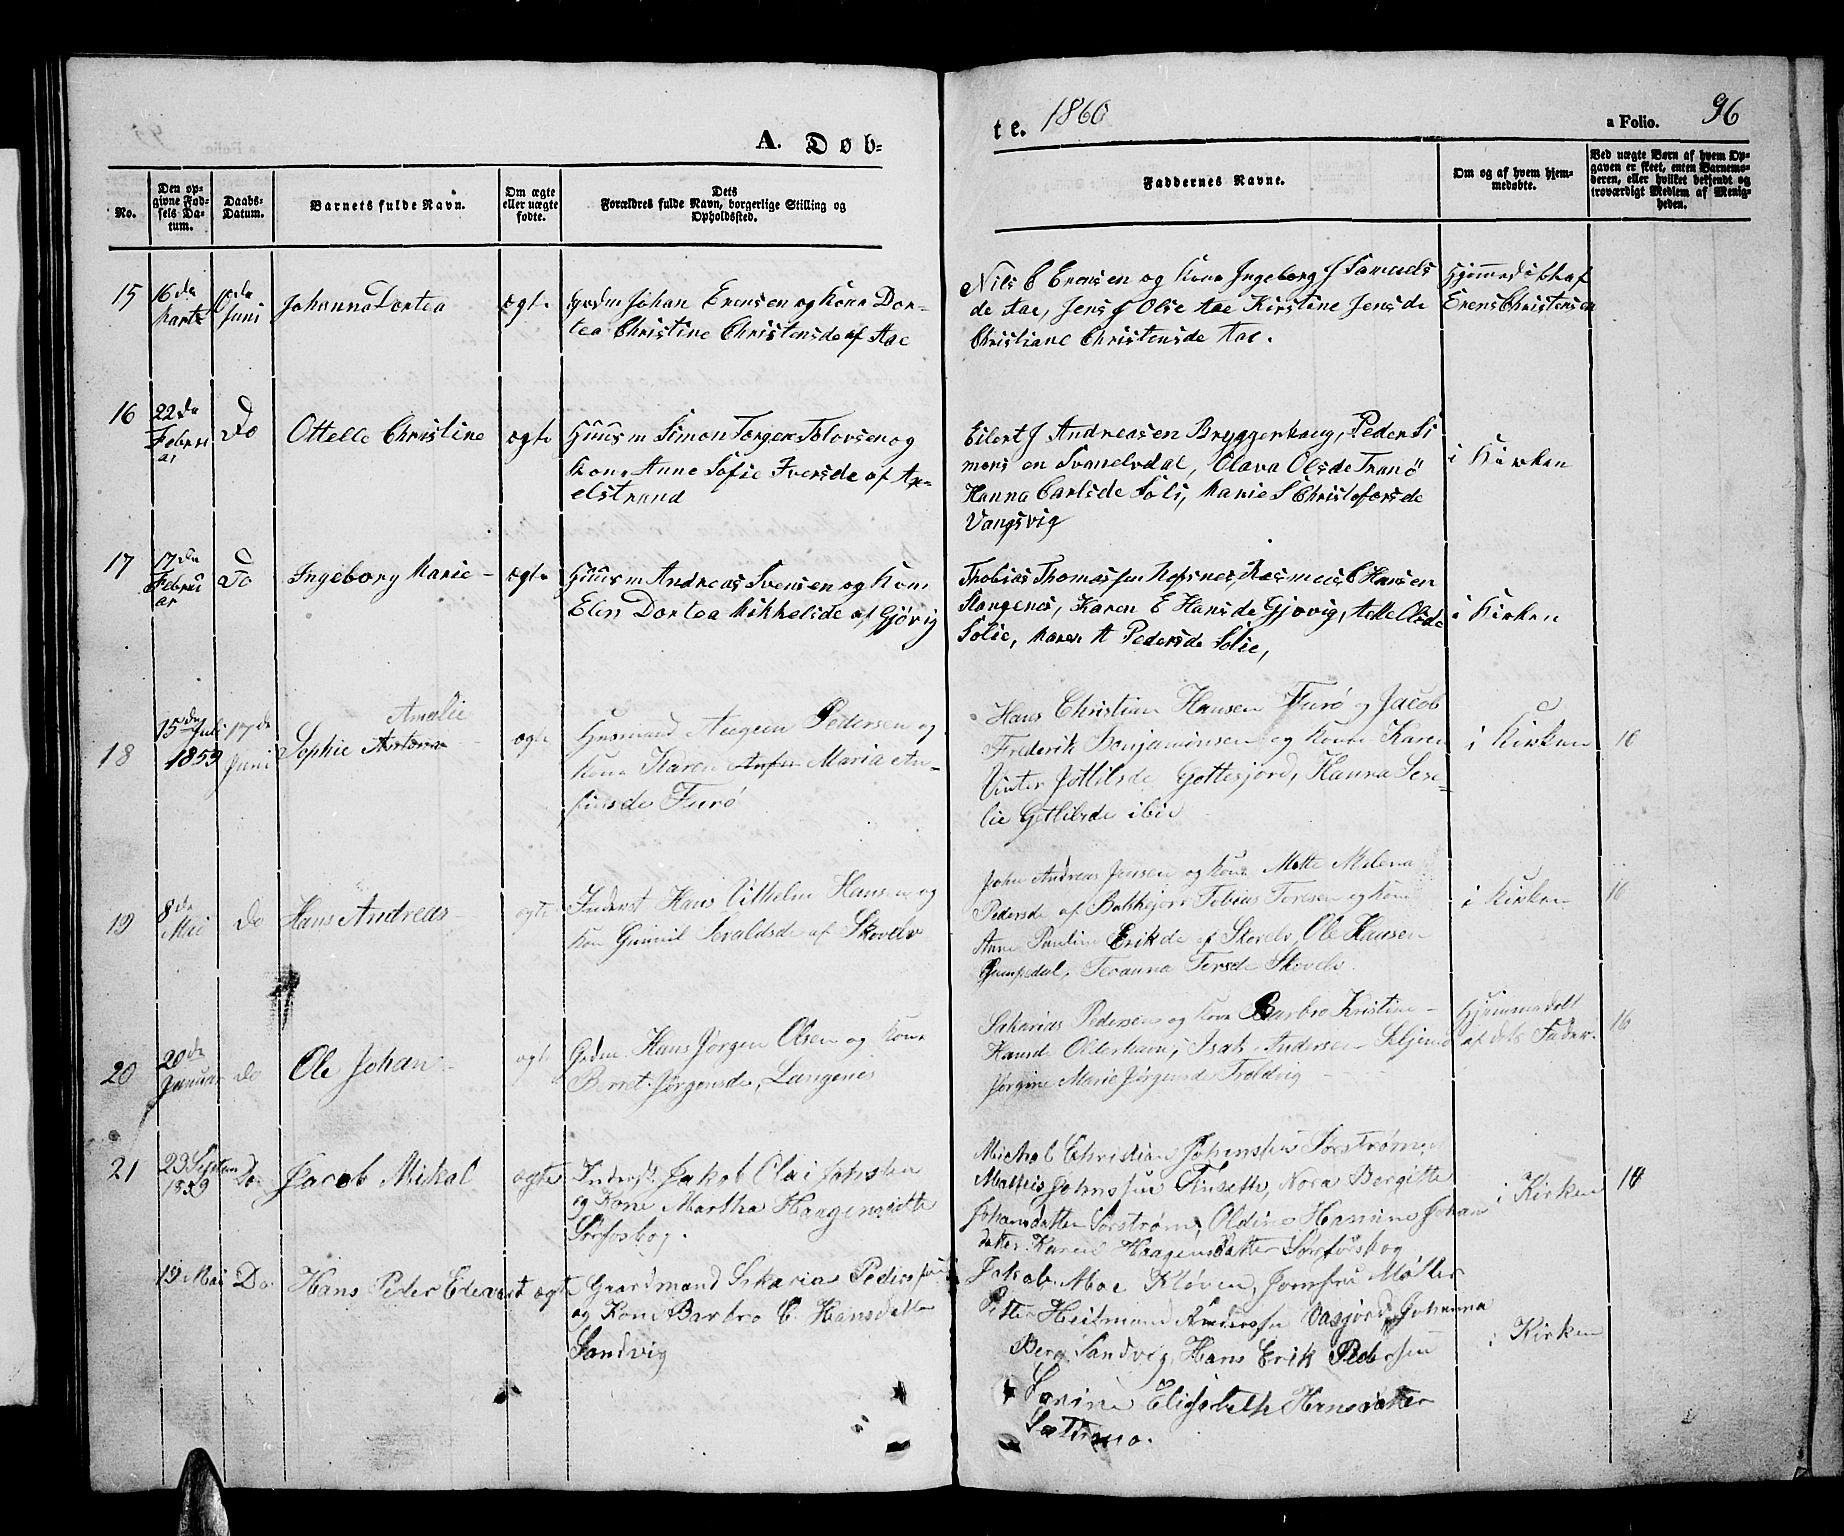 A. Døb-
te. 1860
a Folio. 96
No.
Den opgivne Fødsels Datum.
Daabs-Datum.
Barnets fulde Navn.
Om ægte eller uægte fødte.
Dets Forældres fulde Navn, borgerlige Stilling og Opholdssted.
Faddernes Navne.
Om og af hvem hjemmedøbt.
Ved uægte Børn af hvem Opgaven er skeet, enten Barnemoderen, eller hvilket bekjendt og troværdigt Medlem af Menigheden.
15 16de Marts Juni Johanna Dortea ægte Grdm Johan Erensen og Kone Dor-
tea Christine Christensde af Aae
Nils E Erensen og Kone Ingeborg J Samuels
de Aae, Jens J Olse Aae Kirstine Jensde
Christiane Christensde Aae.
Hjemmedøbt af
Erens Christensen
16 22de Februar Do Ottelle Christine ægte Huusm Simon Torgen Tolovsen og
Kone Anne Sofie Iversde af An-
elstrand
Eilert J Andreasen Bryggerhaug, Peder Si
mons en Svanelvdal, Olava Olsde Tranø
Hanna Carlsde Soli, Marie S Christofersde
Vangsvig
i Kirken
17 17de Februar Do Ingeborg Marie ægte Huusm Andreas Svensen og Kone
Elen Dortea Mikkelsde af Gjøvig
Thobias Thomassen Refsnes, Rasmus C Hansen
Stangenes, Karen E Hansde Gjøvig, Olsde
Solie, Maren A Pedersde Solie,
i Kirken
18 15de Juli 1859 17de Juni Sophie Amalie ægte Husmand Pedersen og
Kone Karen Maria An-
Furø
Hans Christian Hansen Furø og Jacob
Frederik Benjaminsen og Kone Karen
Vinter Gottesjord, Hanna Lese-
lie Getlilsde ibid
i Kirken 16
19 8de Mai Do Hans Andreas ægte Inderst Hans Vilhelm Hansen og
Kone Gunnil Sevaldsde af Skovelv
John Andreas Jensen og Kone Mette Milena
Pedersde af Bakkejord Tobias Toresen og Kone
Anne Pauline Erikde af Skovelv, Ole Hansen
Gumpedal, Teranna Tersde Skovelv
i Kirken 16
20 20de Januar Do Ole Johan ægte Grdm Hans Jørgen Olsen og Kone
Bernt. Jørgensde, Langenes
Sakarias Pedersen og Kone Barbro Kristine
Hansd Olderhavn, Isak Andersen
Jørgine Marie Jørgensd Troldvig
Hjemmedøbt
af dets Fader 16
21 23 Septem 1859 Do Jacob Mikal ægte Inderst Jakob Olai Johnsen
og Kone Martha Haagensdatter
Sørfoskog.
Michal Christian Johnsen Sørstrømen
Mathis Johnssen Finseth, Nora Bergitte
Johansdatter Sørstrøm, Oldine Hansine Johan
datter Karen Haagensdatter Sørforskog
i Kirken 10
19 Mai Do Hans Peder Edevart ægte Gaardmand Sakarias Pederssen
og Kone Barbro C. Hansdatter
Sandvig
Jakob Moe Kløven, Jomfru Møller
Petter Heitmand Anderssen Vasjord, Johanna
Berg Sandvig, Hans Erik Pedersen
Sanine Elisabeth Hansdatter
i Kirken